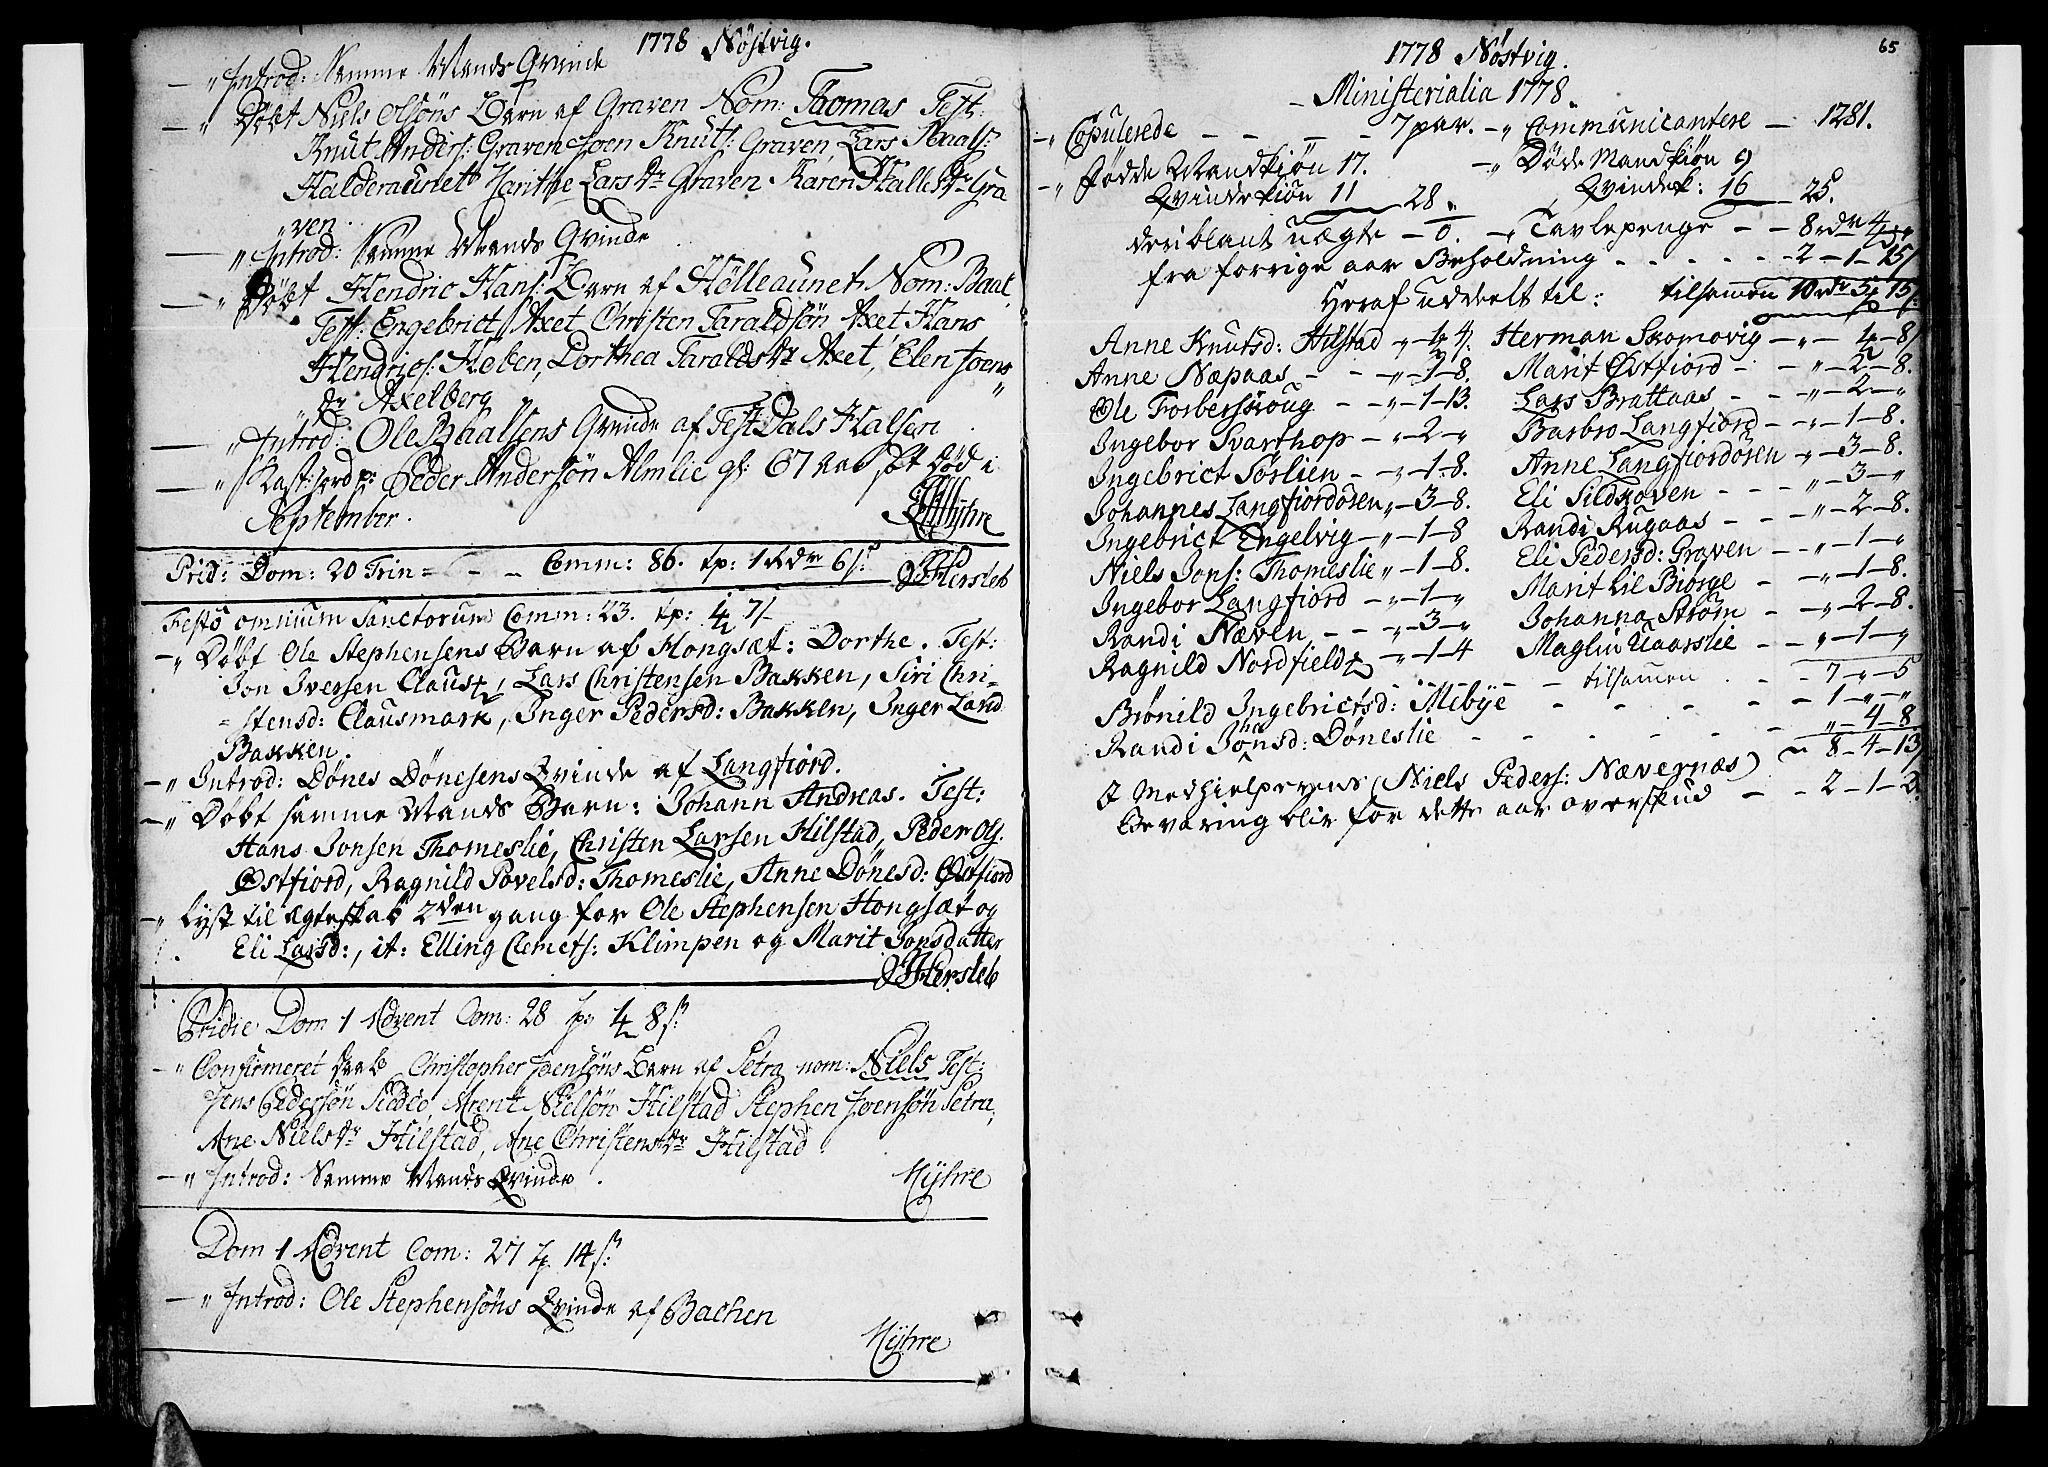 1778 Nöstvig.
— „ Introd: Samme Mands Qvinde
— „ Döbt Niels Olsöns Barn af Graven Nom: Thomas Test:
Knut Anders: Graven Joen Knuts: Graven, Lars Paals:
Halderaunet Marithe Lars Dr Graven. Karen Halles Dr Gra
„ven.
— „ Introd: Samme Mands Qvinde
— „ Döbt Hendric Hans: Barn af Hölleaunet, Nom: Baal,
Test: Engebrict Axet, Christen Taraldsön Axet, Hans
Hendrics: Hoben, Dorthea Taralds Dr Axet, Elen Joens
Dr Axelberg „
— „ Introd: Ole Baalsens Qvinde af Test Dals Halsen.
— „ Kast: jord p: Peder Andersön Almlie gl: 67 Aar död i
September. Myhre
Prid: Dom: 20 Trin = — — Comm: 86. tp: 1 Rdr 6 s:
Hersleb
Festo omnium Sanctorum Comm: 23. tp: 4 7/
— „ Döbt Ole Stephensens Barn af Hongsæt: Dorthe. Test:
Jon Iversen Claus, Lars Christensen Bakken, Siri Chri-
= stensd: Clausmark, Inger Pedersd: Bakken, Inger Land
Bakken.
— „ Introd: Dönes Dönesens Qvinde af Langfiord.
— „ Döbt samme Mands Barn: Johann Andreas. Test:
Hans Jonsen Thomeslie, Christen Larsen Hilstad, Peder Ols.
Østfiord, Ragnild Povelsd: Thomeslie, Anne Dönesd: Østfiord
— „ Lyst til Ægteskab 2den gang for Ole Stephensen Hongsæt og
Eli Larsd:, it: Elling Clemets: Klimpen og Marit Jonsdatter
Hersleb
Pridie Dom 1 Advent Com: 28 tp 4 8 s:
— „ Confirmeret daab Christopher Joensöns Barn af Setra nom: Niels Test:
Jens Pedersön, Arent Nielsön Hilstad Stephen Joensön Setra,
Ane Niels Dr Hilstad, Ane Christens Dr Hilstad
— „ Introd: Samme Mands Qvinde. Myhre
Dom 1 Advent Com: 27 tp 14 s:
— „ Introd: Ole Stephensöns Qvinde af Bachen
Myhre
65
1778 Nöstvig.
Ministerialia 1778
— „ Copulerede — — — — 7 par. — „ Communicantere — 1281.
— „ Födde Mandkiön 17. — „ Döde Mandkiön 9
Qvindekiön 11 28. Qvindek: 16 25.
deriblant uægte — 0. — „ Tavlepenge — — 8 rdr 4
fra forrige aar Beholdning — — — — 2 — 1 — 15/
Heraf uddeelt til: tilsamen 10 rdr 5 15/
Anne Knutsd: Hilstad „ — 1 4. Herman Skomovig — „ — 4 — 8/
Anne Næpaas — — „ — 1 — 8. Marit Østfiord — — „ — 2 — 8.
Ole Forberskoug — — „ — 1 — 13. Lars Brattaas — — „ — 2 — „
Ingebor Svarthop — „ — 2 — „ Barbro Langfiord — — „ — 1 — 8.
Ingebrict Sörlien — — „ — 1 — 8. Anne Langfiordören „ — 3 — 8.
Johannes Langfiordösen „ — 3 — 8. Eli Sildhoven — — — „ — 3 — „
Ingebrict Engelvig — „ — 1 — 8 Randi Rugaas — — — „ — 2 — 8.
Niels Jons: Thomeslie „ — 1 — 8. Eli Pedersd: Graven — — „ — 1 — „
Ingebor Langfiord — „ — 1 — „ Marit lil Biörge — „ — 1 — 8.
Randi Næven — — „ — 3 — „ Johanna Ström — „ — 2 — 8.
Ragnild Nordfield — „ — 1 — 4 Maglin Aaarslie — — „ — 1 — „
— — — tilsamen — — 7 — „ — 5
Brönild Ingebrictsd: Mebye — — — — 1 — „ — „
Randi Jönsd: Döneslie — — — — „ — 4 — 8
8 — 4 — 13/
I Medhielperens (Niels Peders: Nævernæs)
Bevaring blir for dette aar overskud — — 2 — 1 — 2.